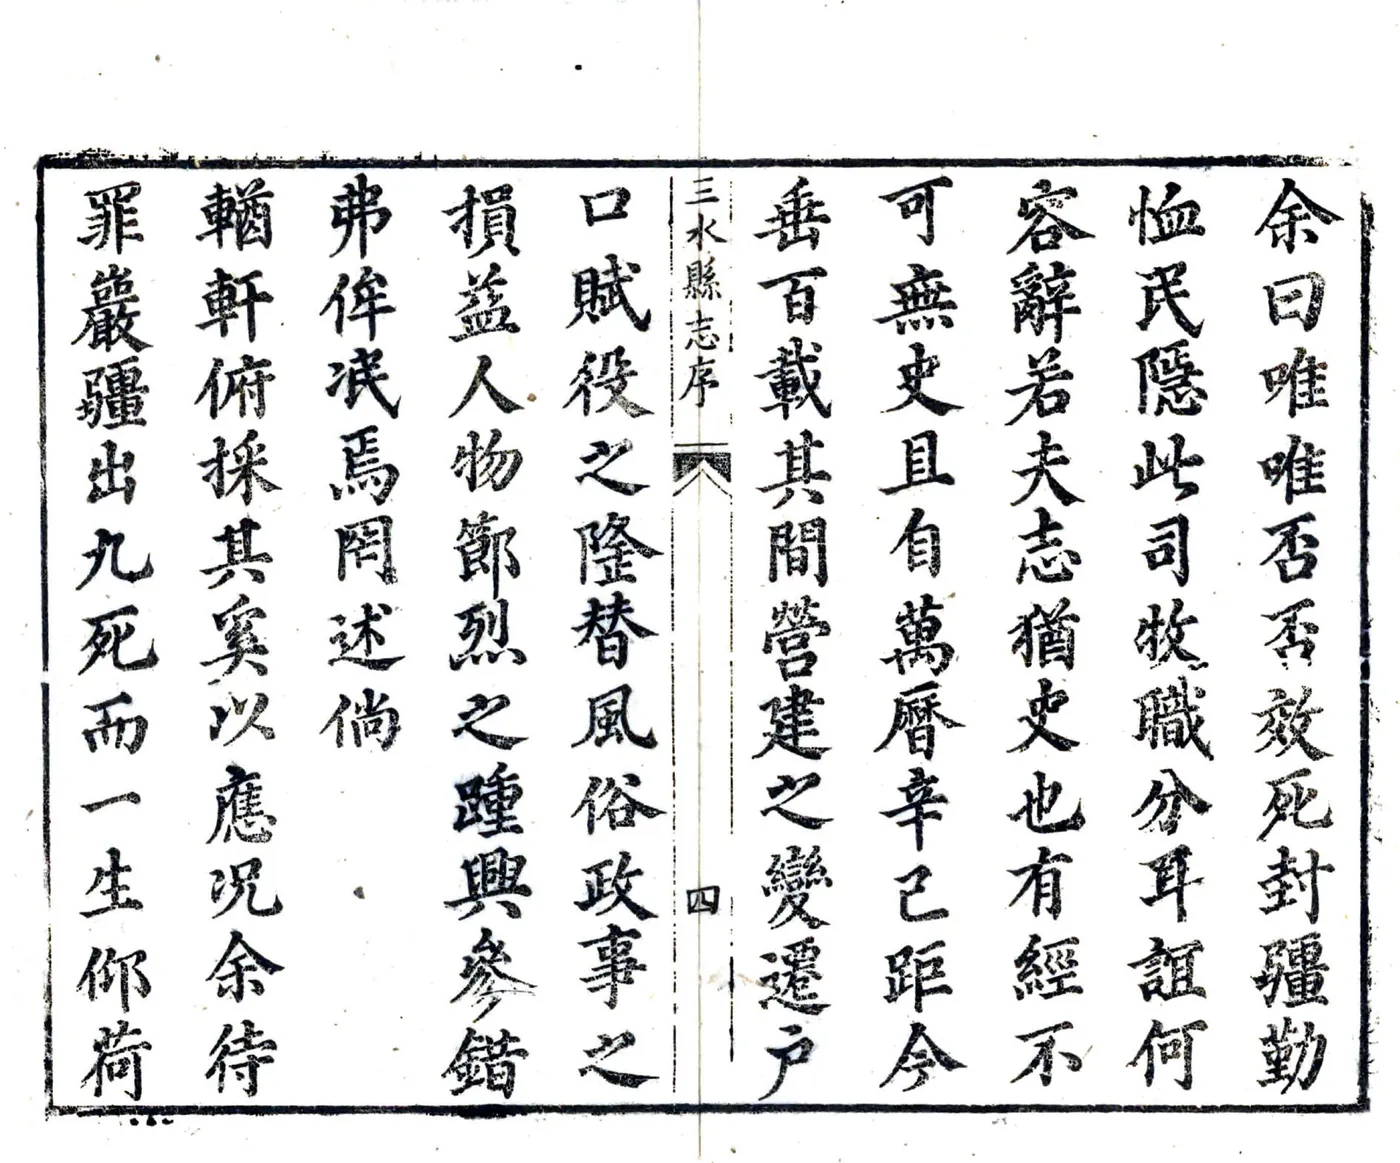 余曰唯唯否否效死封疆勤
恤民隱此司牧職分耳誼何
容辭若夫志猶史也有經不
可無史且自萬曆辛巳距今
垂百載其間營建之變遷户
三水縣志序
四
口賦役之隆替風俗政事之
損益人物節烈之踵興參錯
弗侔泯焉罔述倘
輶軒俯採其奚以應况余待
罪巖疆出九死而一生仰荷